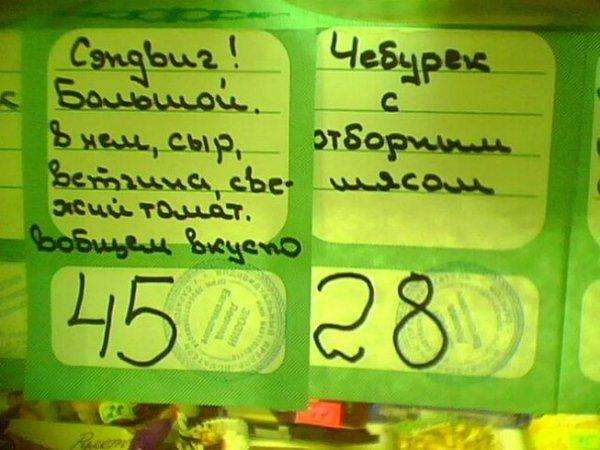 Сэндвиг!
Большой.
в нем, сыр,
ветчина, све-
жий томат.
вобщем вкусно
45
Чебурек
с
отборным
мясом
28